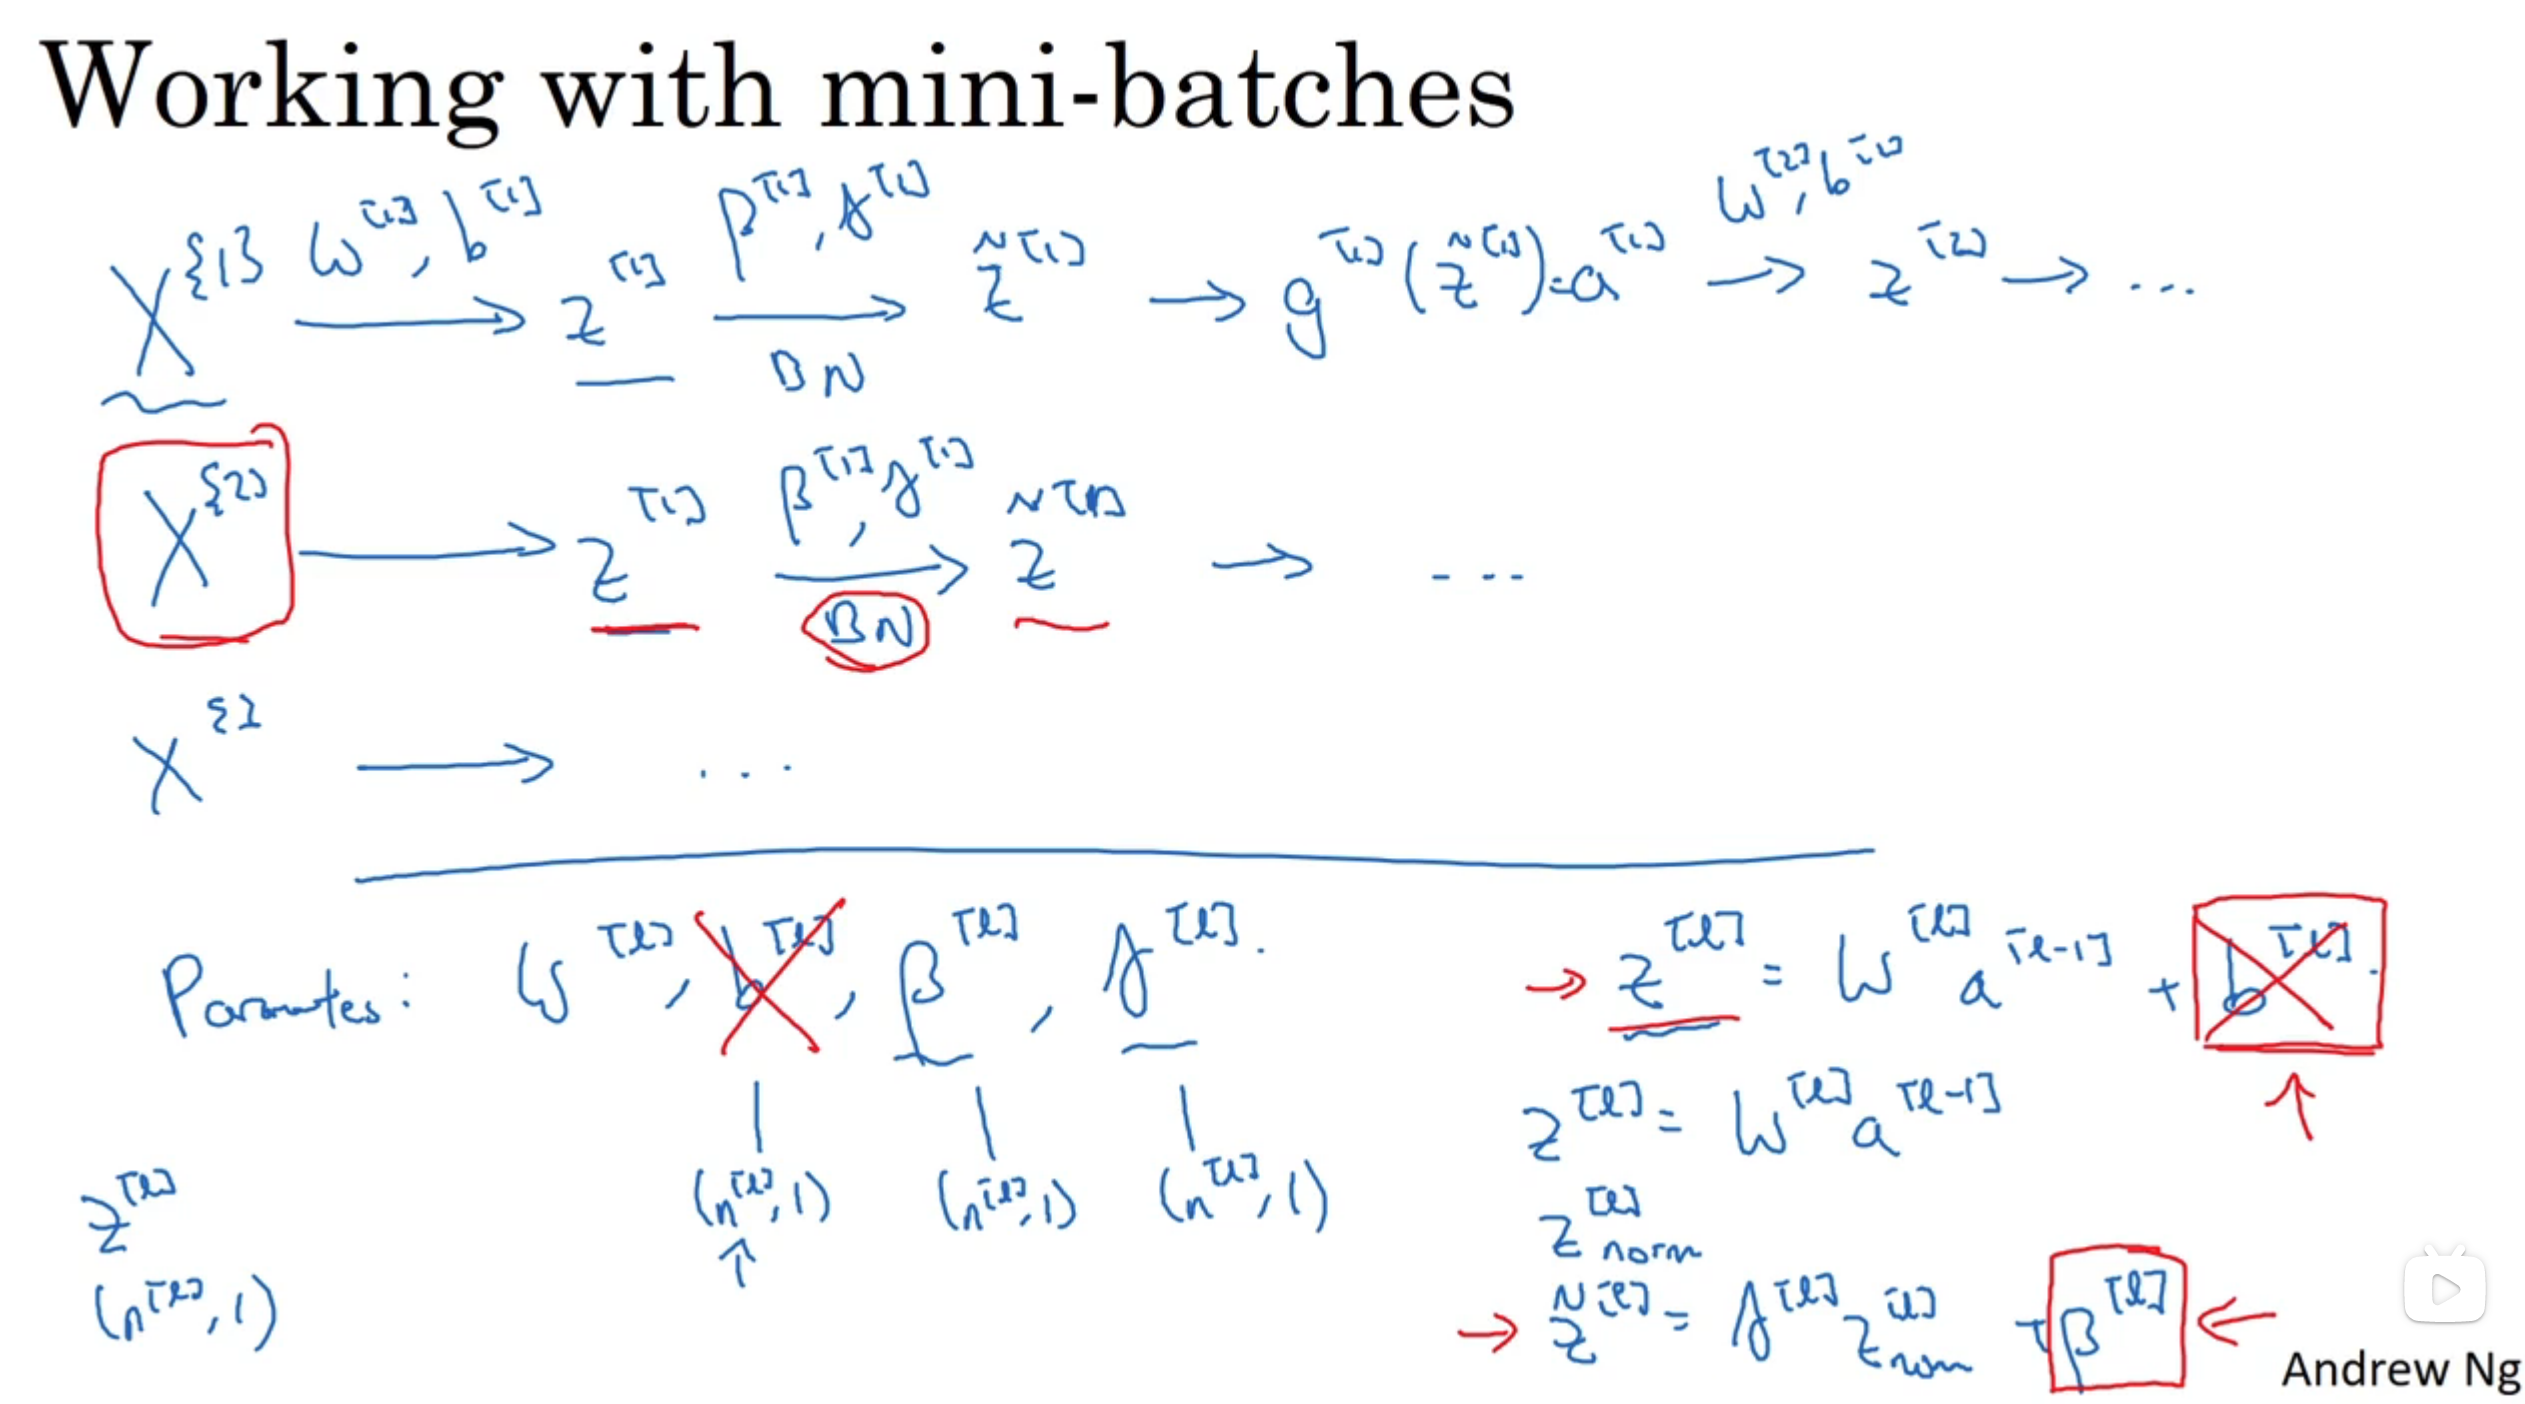 Working with mini-batches
X^{1} W^[1], b^[1] → z^[1] β^[1], γ^[1] → BN z̃^[1] → g^[1](z̃^[1]) = a^[1] W^[2], b^[2] → z^[2] → ...
X^{2} → z^[1] β^[1], γ^[1] → BN z̃^[1] → ...
X^{} → ...
Parameters: W^[l], b^[l], β^[l], γ^[l].
(n^[l], 1) (n^[l], 1) (n^[l], 1)
↑
z^[l]
(n^[l], 1)
→ z^[l] = W^[l] a^[l-1] + b^[l].
↑
z^[l] = W^[l] a^[l-1]
z^[l] norm
→ z̃^[l] = γ^[l] z^[l] norm + β^[l] ←
Andrew Ng